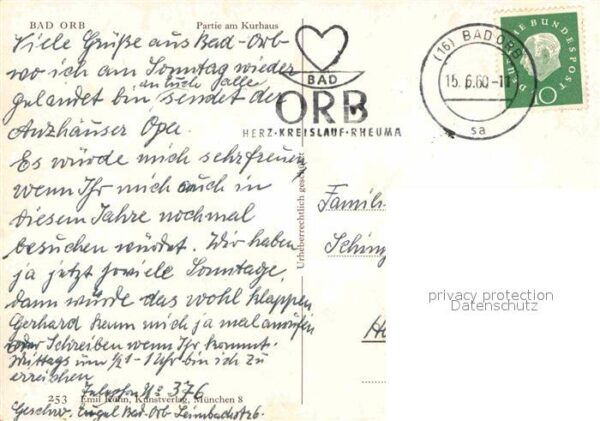 BAD ORB Partie am Kurhaus
Viele Grüße aus Bad-Orb
wo ich am Sonntag wieder
an Euch alle
gelandet bin, sendet der
Anzhäuser Opa.
Es würde mich sehr freuen
wenn Ihr mich auch in
diesem Jahre nochmal
besuchen würdet. Wir haben
ja jetzt soviele Sonntage,
dann würde das wohl klappen
Gerhard kann mich ja mal anrufen
oder Schreiben wenn Ihr kommt.
Mittags um ½1 - 1 Uhr bin ich zu
erreichen
Telefon Nr 376
253 Emil Köhn, Kunstverlag, München 8
Geschw. Engel Bad-Orb Leimbachstr 6.
Urheberrechtlich geschützt
BAD
ORB
HERZ·KREISLAUF·RHEUMA
(16) BAD ORB
15.6.60-11
sa
DEUTSCHE BUNDESPOST
10
Famil.
Sching
H
privacy protection
Datenschutz